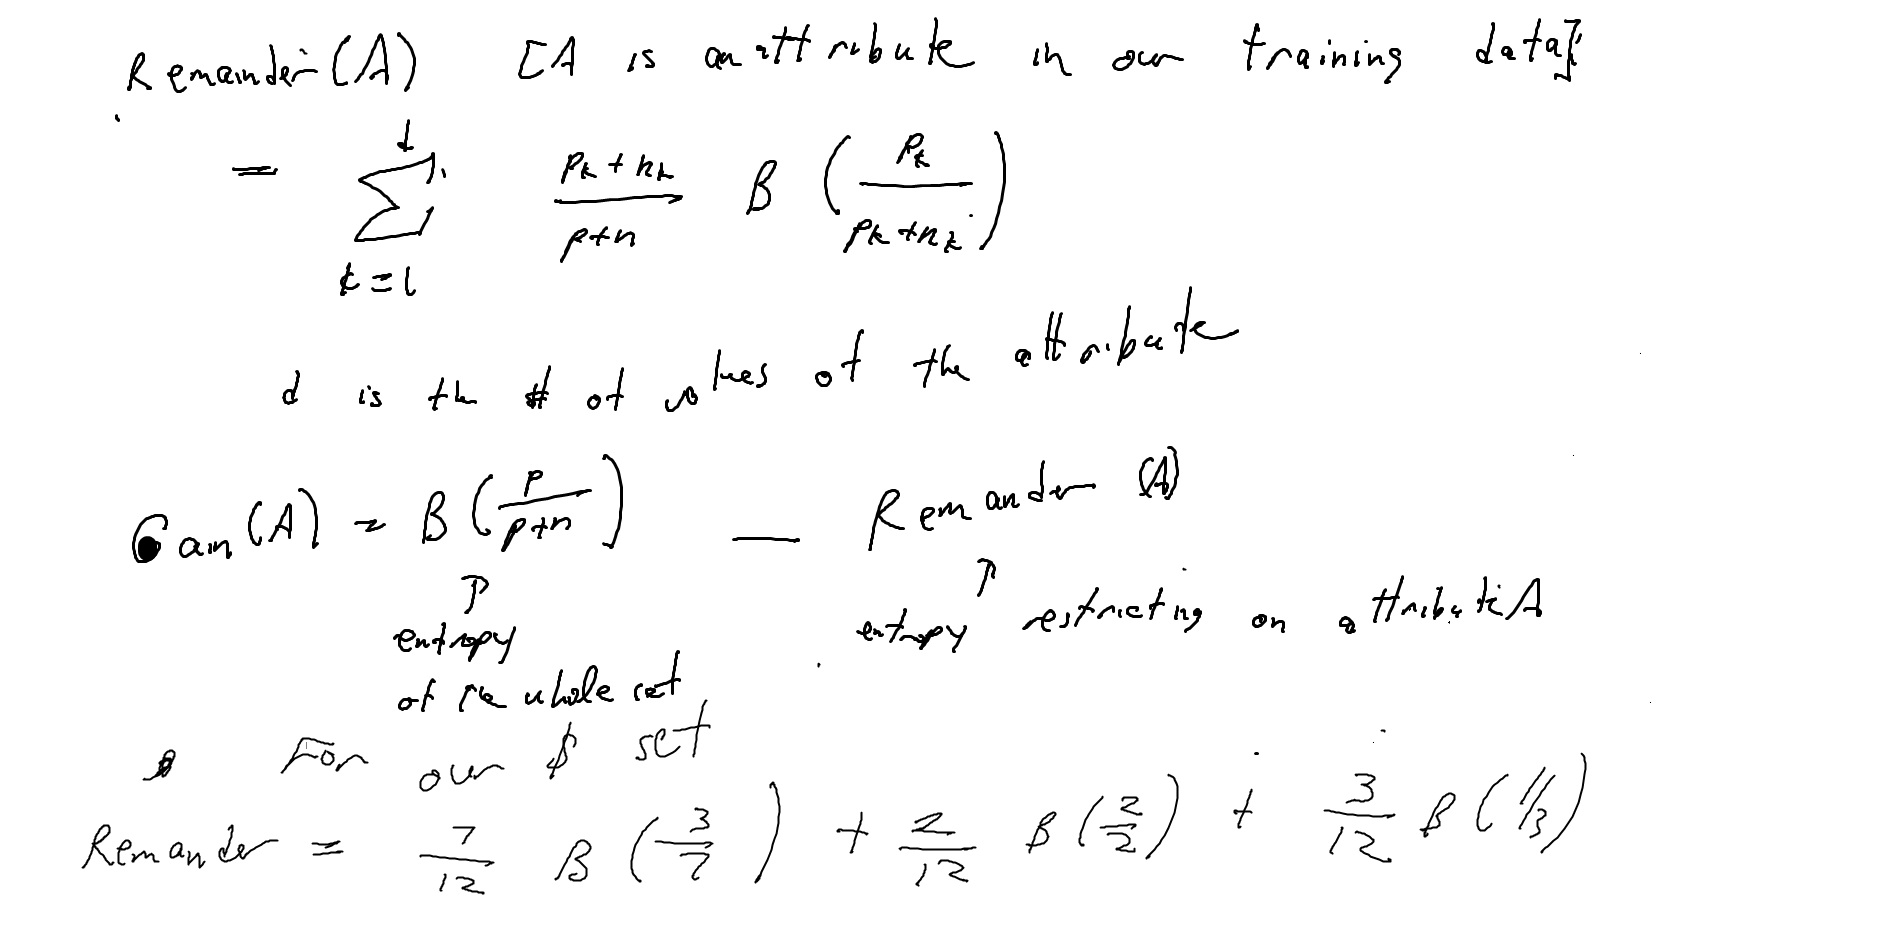 Remainder (A) [A is an attribute in our training data]
= \sum_{k=1}^{d} \frac{p_k + n_k}{p+n} B \left( \frac{p_k}{p_k + n_k} \right)
d is the # of values of the attribute
Gain (A) = B \left( \frac{p}{p+n} \right) — Remander (A)
↑ ↑
entropy entropy restricting on attribute A
of the whole set
For our $ set
Remander = \frac{7}{12} B \left( \frac{3}{7} \right) + \frac{2}{12} B \left( \frac{2}{2} \right) + \frac{3}{12} B (1/3)